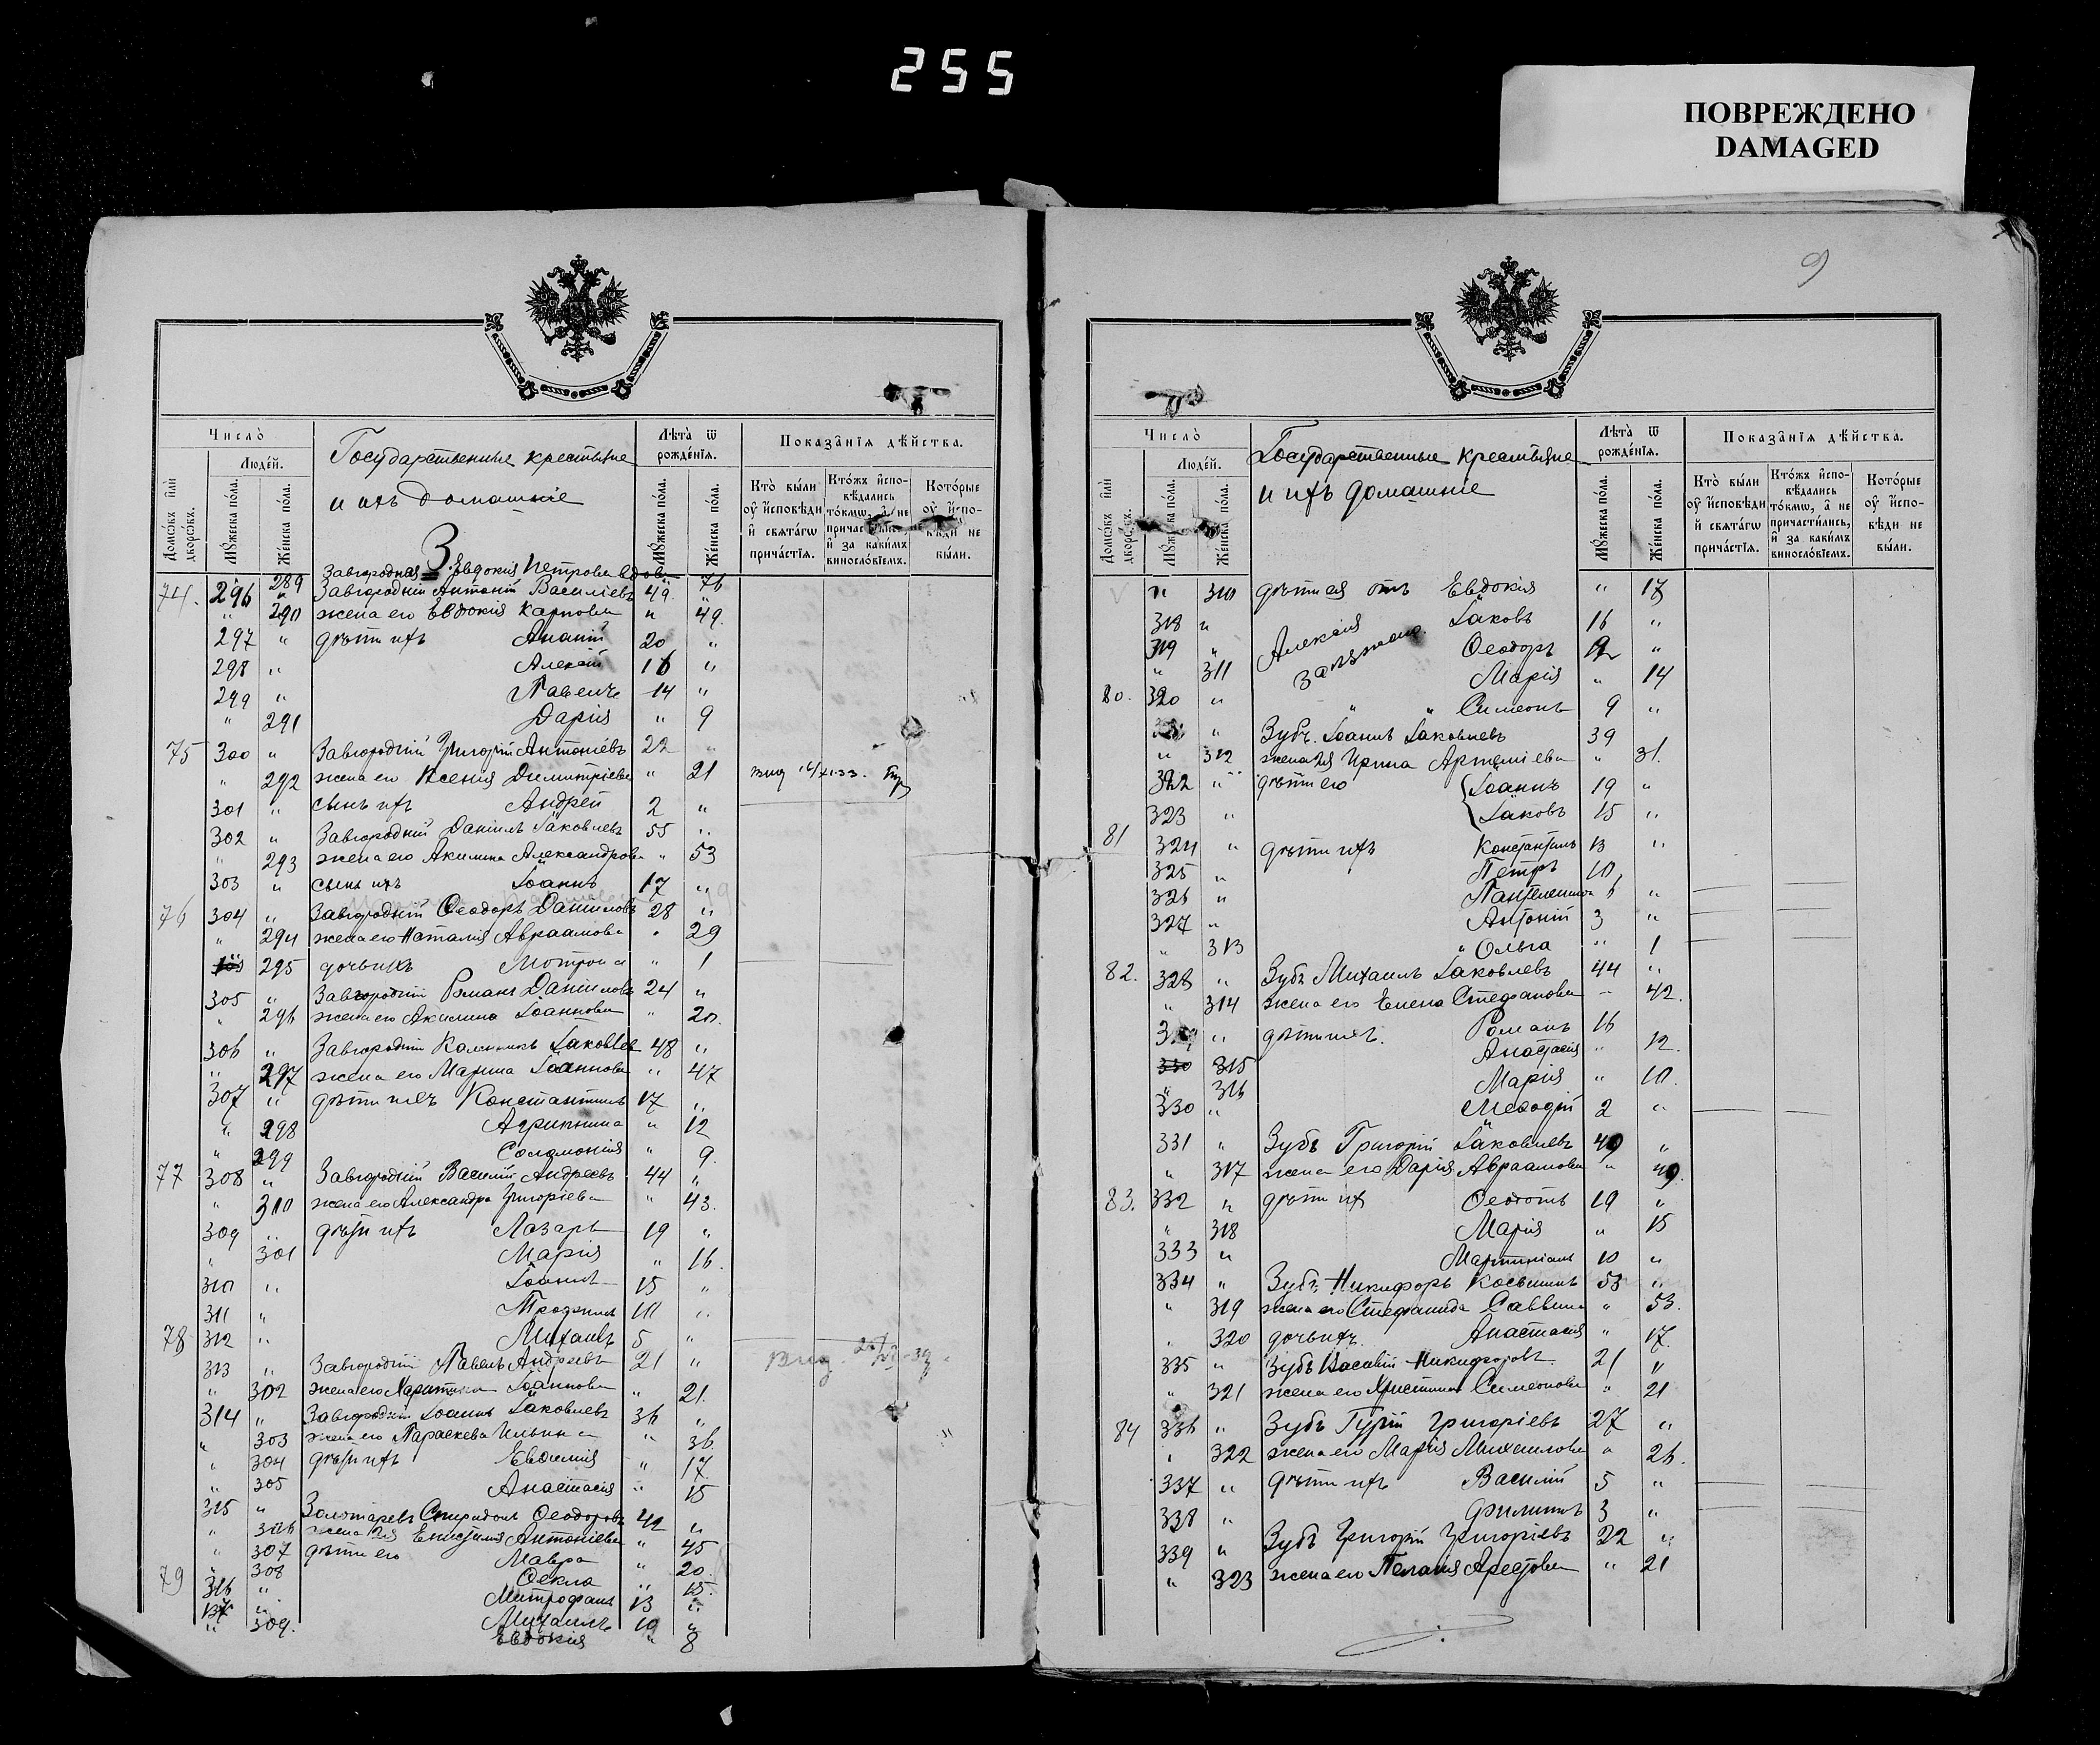 255
ПОВРЕЖДЕНО
DAMAGED
Число̀
Людéй.
Домѡ́въ и҆лѝ дворѡ́въ.
Мꙋ́жеска по́ла.
Же́нска по́ла.
Государственные крестьяне
и ихъ домашніе
З.
Лѣта̀ ѿ рожде́нїѧ.
Мꙋ́жеска по́ла.
Же́нска по́ла.
Показа̑нїѧ дѣ́йства.
Кто̀ бы́ли оу҆ и҆сповѣди и҆ свѧта́гѡ прича́стїѧ.
Кто́жъ и҆спо-вѣдались то́кмѡ, а҆ не причас и҆ за каки́мъ винослóвїемъ.
Кото́рые оу҆ и҆спо-вѣди не бы́ли.
289 Завгородняя Евдокія Петрова вдова 76
74. 296 " Завгородній Антоній Васильевъ 49. "
" 290 жена его Евдокія Карпова " 49.
297 " дѣти ихъ Ананій 20 "
298 " Алексій 16 "
299 " Павелъ 14 "
" 291 Дарія " 9
75 300 " Завгородній Григорій Антоніевъ 22 "
" 292 жена его Ксенія Димитріева " 21
301 " сынъ ихъ Андрей 2 "
302 " Завгородній Даніилъ Іаковлевъ 55 "
" 293 жена его Акилина Александрова " 53
303 " сынъ ихъ Іоаннъ 17 "
76 304 " Завгородній Ѳеодоръ Даниловъ 28 "
" 294 жена его Наталія Авраамова " 29
295 дочь ихъ Мотрона " 1
305 " Завгородній Романъ Даниловъ 24 "
" 296 жена его Акилина Іоаннова " 20.
306 " Завгородній Калиникъ Іаковлев 48 "
" 297 жена его Марина Іоаннова " 47
307 " дѣти ихъ Константинъ 17 "
" 298 Агрипина " 12
" 299 Соломонія " 9.
77 308 " Завгородній Василій Андреевъ 44 "
" 300 жена его Александра Григоріева " 43.
309 " дѣти ихъ Лазарь 19 "
" 301 Марія " 16.
310 " Іоаннъ 15 "
311 " Трофимъ 10 "
78 312 " Михаилъ 5 "
313 " Завгородній Павелъ Андреевъ 21 "
" 302 жена его Харитина Іоаннова " 21.
314 " Завгородній Іоаннъ Іаковлевъ 36 "
" 303 жена его Параскева Ильина " 36.
" 304 дѣти ихъ Евдокія " 17.
" 305 Анастасія " 15
315 " Золотаревъ Спиридонъ Ѳеодоровъ 42 "
" 306 жена 2я Антоніева " 45
" 307 дѣти его Мавра " 20.
" 308 Ѳекла " 15.
79 316 " Митрофанъ 13 "
317 " Михаилъ 10 "
" 309. Евдокія " 8
9
Число̀
Людéй.
Домѡ́въ и҆лѝ дворѡ́въ.
Мꙋ́жеска по́ла.
Же́нска по́ла.
Государственные крестьяне
и ихъ домашніе
Лѣта̀ ѿ рожде́нїѧ.
Мꙋ́жеска по́ла.
Же́нска по́ла.
Показа̑нїѧ дѣ́йства.
Кто̀ бы́ли оу҆ и҆сповѣди и҆ свѧта́гѡ прича́стїѧ.
Кто́жъ и҆спо-вѣдались то́кмѡ, а҆ не причасти́лись, и҆ за каки́мъ винослóвїемъ.
Кото́рые оу҆ и҆спо-вѣди не бы́ли.
" 310 Евдокія " 17
318 " Іаковъ 16 "
319 " Алексія Ѳеодоръ 12 "
" 311 Марія " 14
80. 320 " " " Симеонъ 9 "
" Зубъ Іоаннъ Іаковлевъ 39
" 312 жена 2я Ирина Артеміева " 31.
322 " дѣти его Іоаннъ 19 "
323 " Іаковъ 15 "
81 324 " дѣти ихъ Константинъ 13 "
325 " Петръ 10
326 " Пантелеимонъ 6 "
327 " Антоній 3 "
" 313 " Ольга " 1
82. 328 " Зубъ Михаилъ Іаковлевъ 44 "
" 314 жена его Елена Стефанова " 42.
329 " дѣти ихъ. Романъ 16
330 315 Анастасія " 12.
" 316 Марія " 10.
330 " Меѳодій 2 "
331 " Зубъ Григорій Іаковлевъ 49 "
" 317 жена его Дарія Авраамова " 49.
83. 332 " дѣти ихъ Ѳеодотъ 19 "
" 318 Марія " 15
333 " Мартиніанъ 10 "
334 " Зубъ Никифоръ Косьминъ 53 "
" 319 жена его Стефанида Саввина " 53.
" 320 дочь ихъ Анастасія " 17.
335 " Зубъ Никифоровъ 21 "
" 321 жена его Христина Симеонова " 21
84 336 " Зубъ Гурій Григоріевъ 27 "
" 322 жена его Марія Михаилова " 26.
337 " дѣти ихъ Василій 5 "
338 " Филиппъ 3 "
339 " Зубъ Григорій Григоріевъ 22 "
" 323 жена его Пелагія " 21